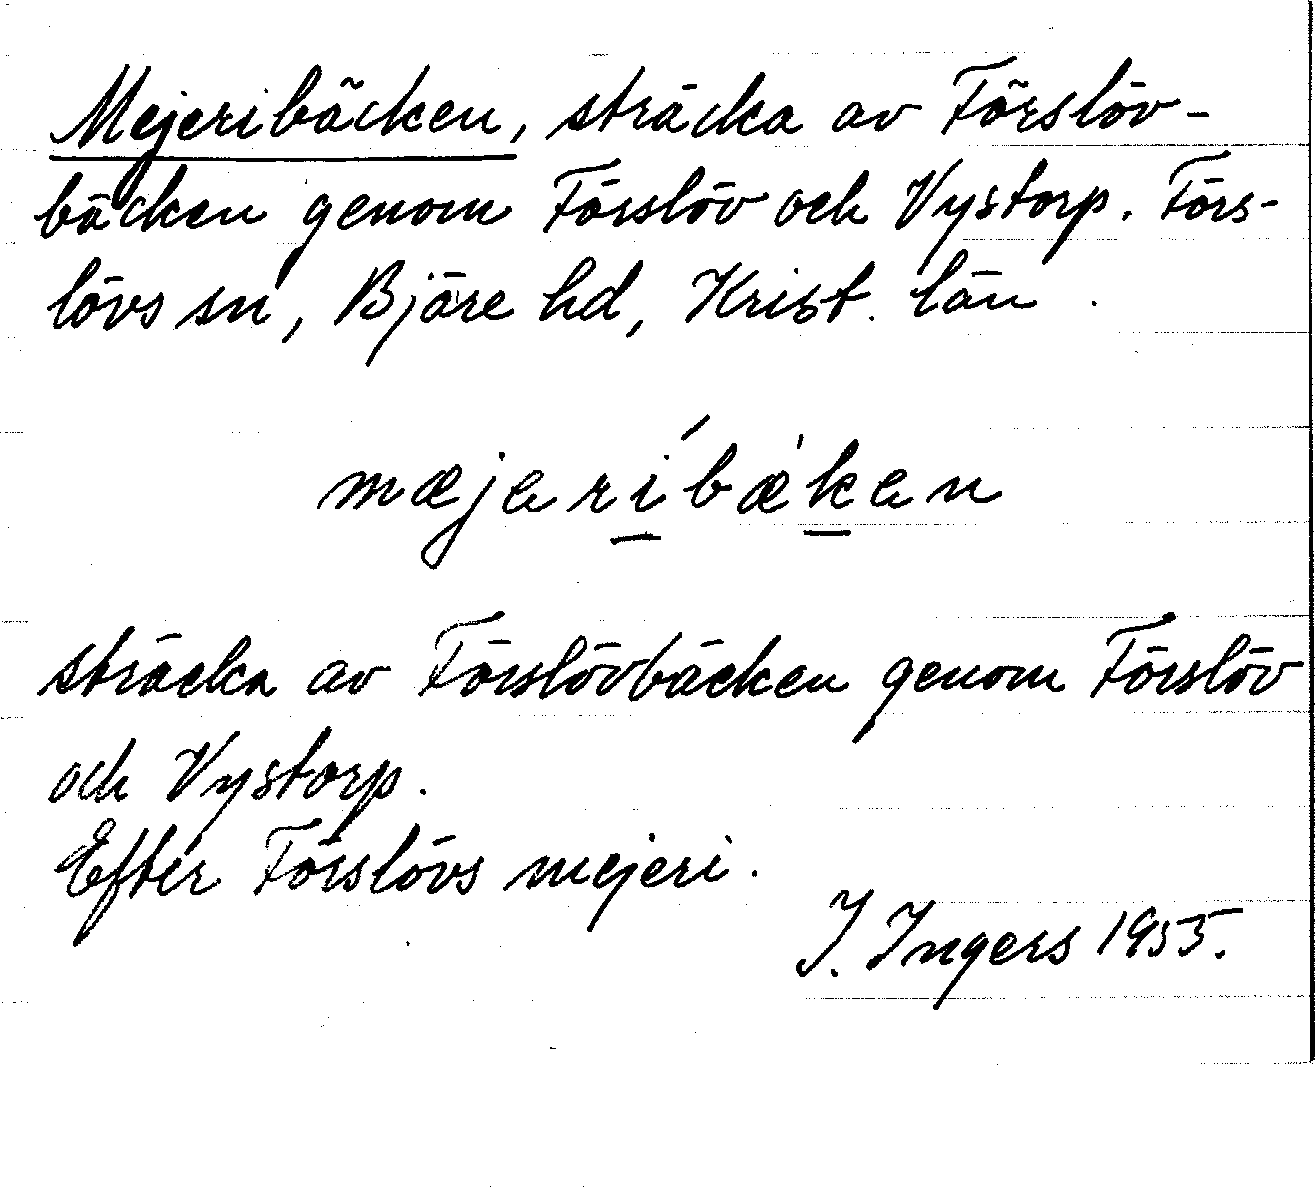 Mejeribäcken, sträcka av Förslöv-
bäcken genom Förslöv och Vystorp. Förs-
lövs sn, Bjäre hd, Krist. län.
mæjeríbæken
sträcka av Förslövbäcken genom Förslöv
och Vystorp.
Efter Förslövs mejeri.
I. Ingers 1955.